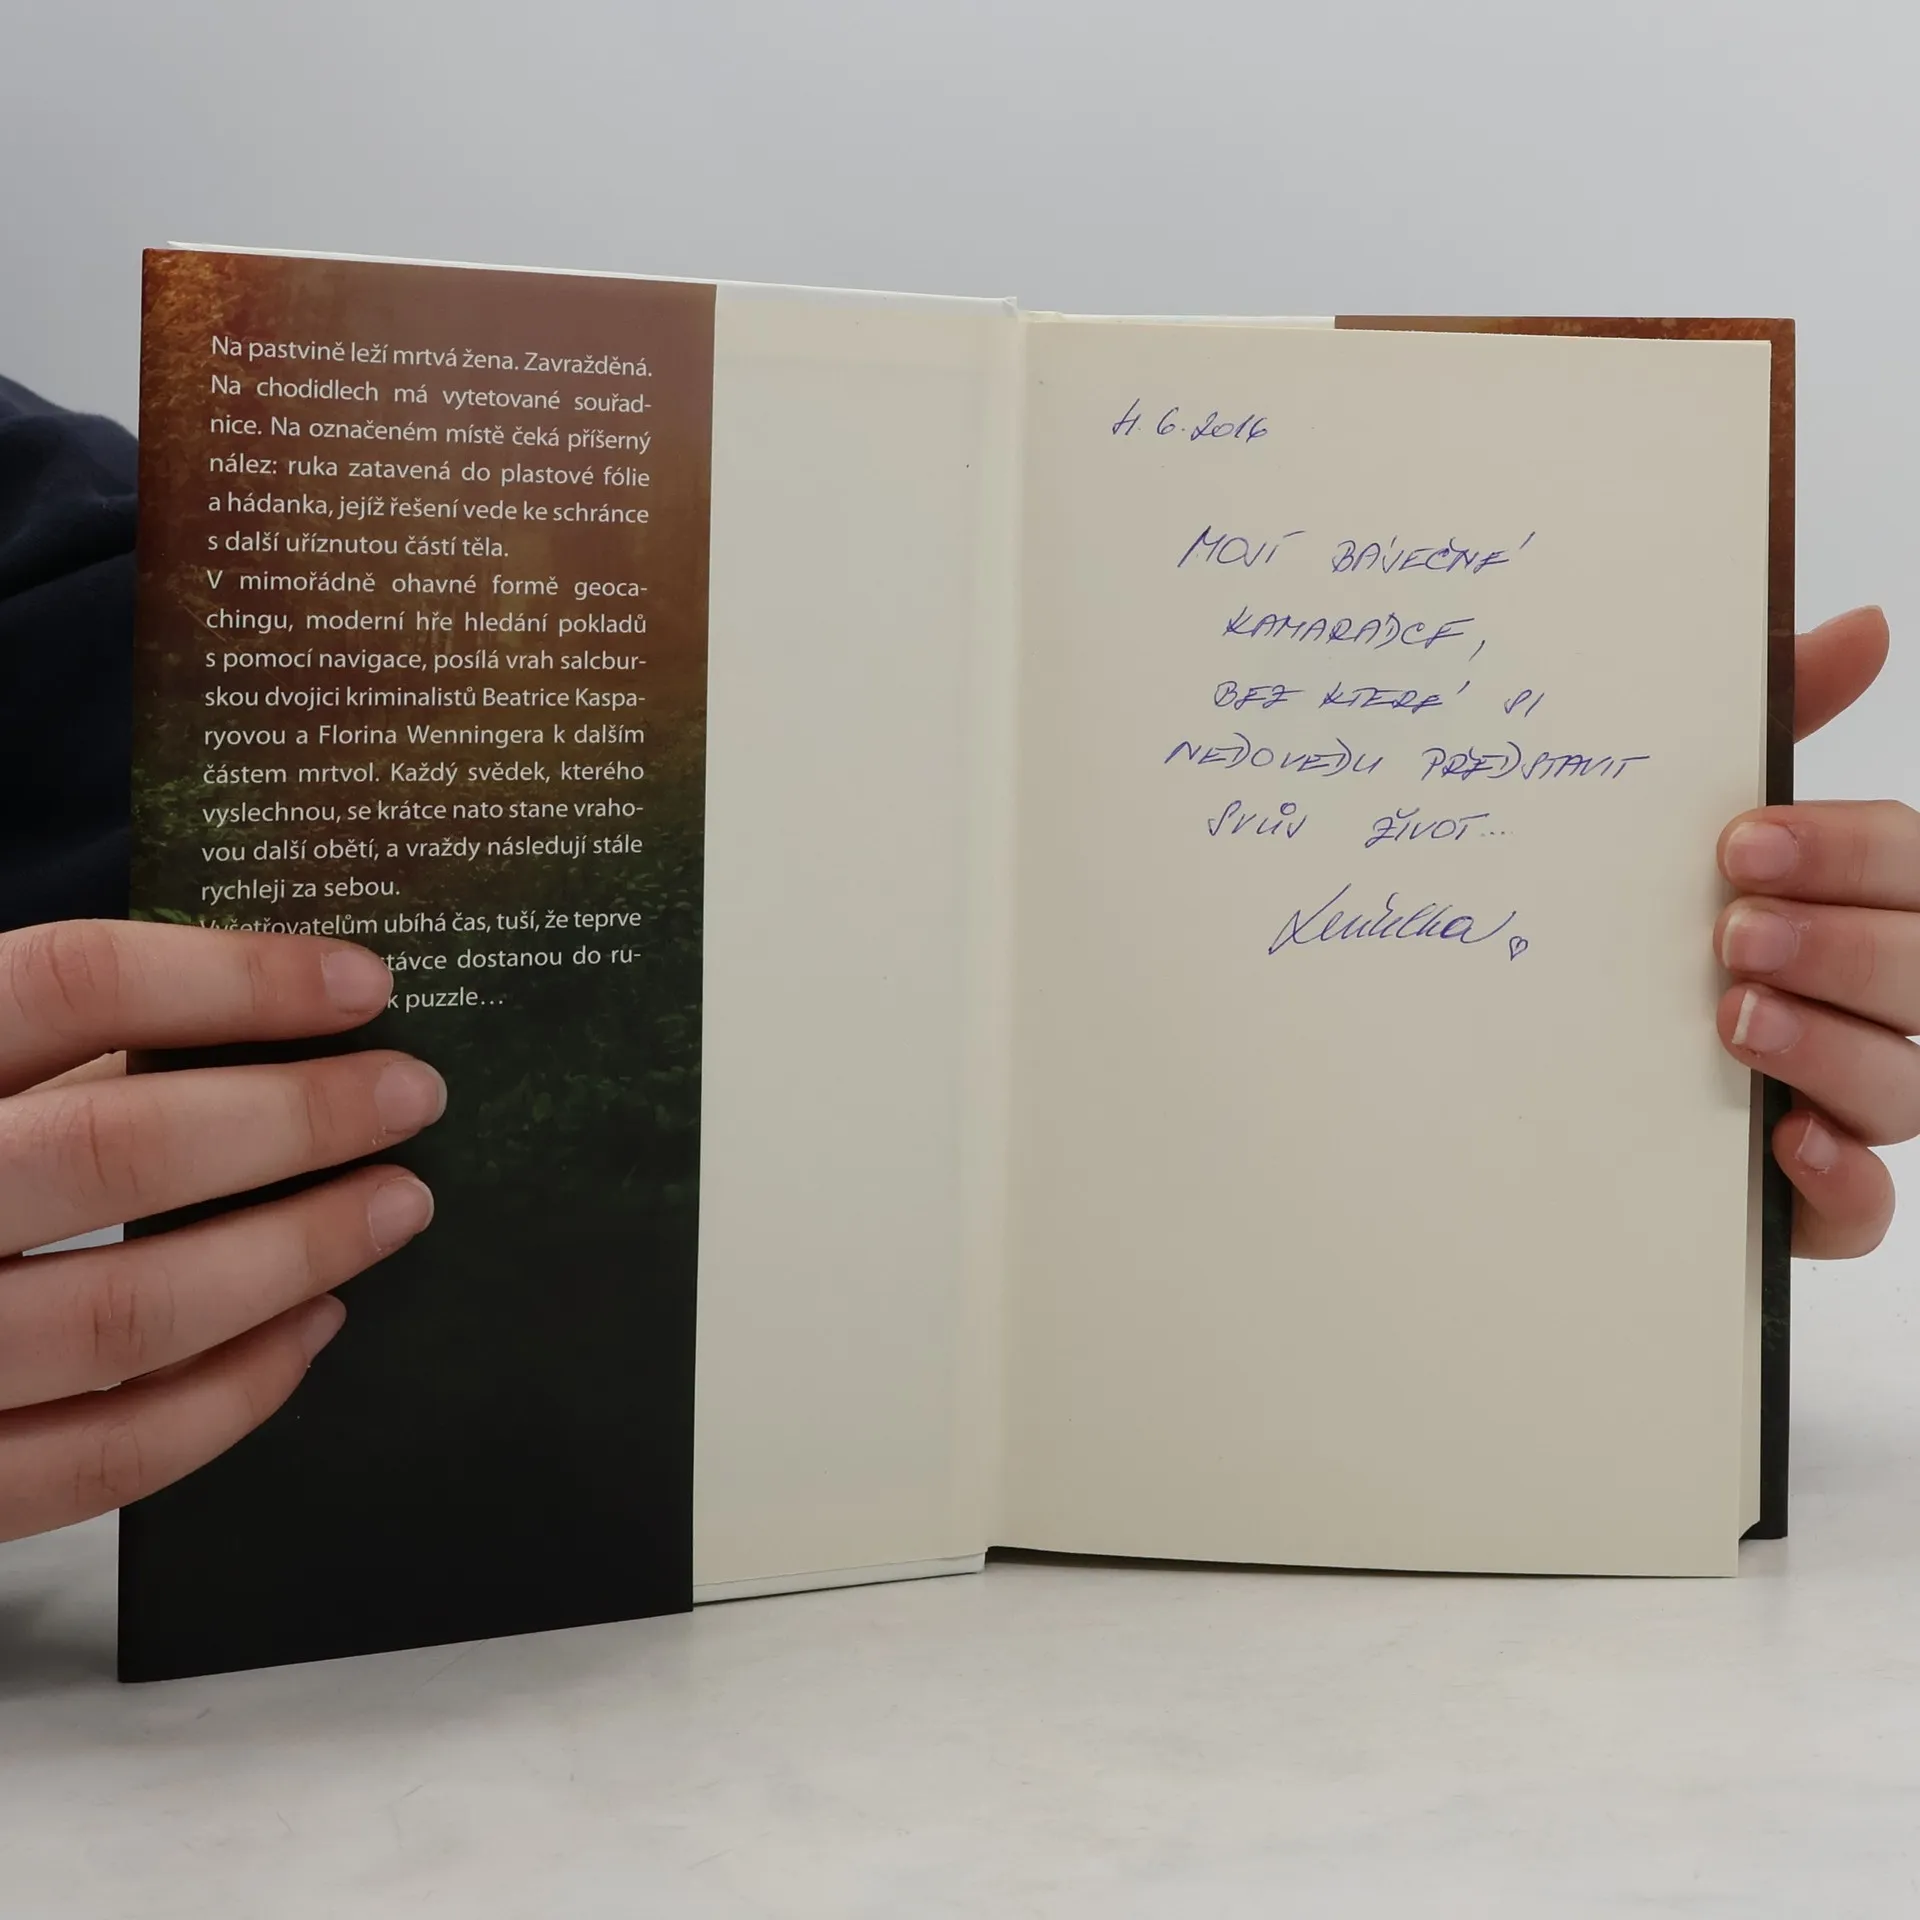 Na pastvině leží mrtvá žena. Zavražděná.
Na chodidlech má vytetované souřad-
nice. Na označeném místě čeká příšerný
nález: ruka zatavená do plastové fólie
a hádanka, jejíž řešení vede ke schránce
s další uříznutou částí těla.
V mimořádně ohavné formě geoca-
chingu, moderní hře hledání pokladů
s pomocí navigace, posílá vrah salcbur-
skou dvojici kriminalistů Beatrice Kaspa-
ryovou a Florina Wenningera k dalším
částem mrtvol. Každý svědek, kterého
vyslechnou, se krátce nato stane vraho-
vou další obětí, a vraždy následují stále
rychleji za sebou.
Vyšetřovatelům ubíhá čas, tuší, že teprve
távce dostanou do ru-
k puzzle...
4. 6. 2016
MOJÍ BÁJEČNÉ
KAMARÁDCE,
BEZ KTERÉ SI
NEDOVEDU PŘEDSTAVIT
SVŮJ ŽIVOT...